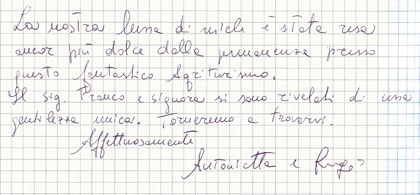 La nostra luna di miele è stata resa
ancor più dolce dalla permanenza presso
questo fantastico Agriturismo.
Il sig. Franco e signora si sono rivelati di una
gentilezza unica. Torneremo a trovarvi.
Affettuosamente
Antonietta e